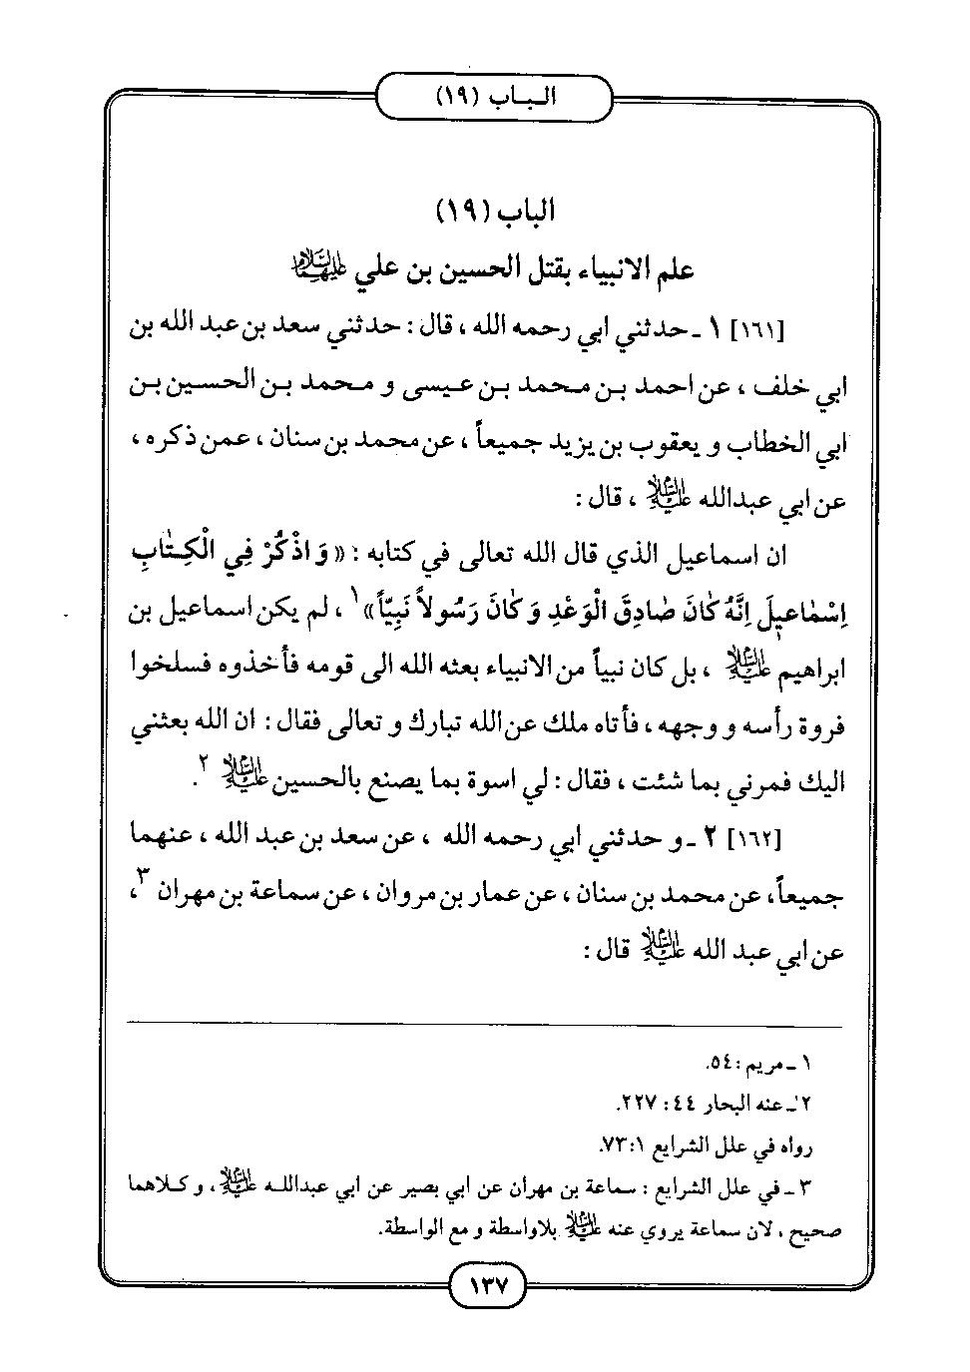 الـبـاب (١٩)
الباب (١٩)
علم الانبياء بقتل الحسين بن علي عليهما السلام
[١٦١] ١ ـ حدثني ابي رحمه الله ، قال : حدثني سعد بن عبد الله بن
ابي خلف ، عن احمد بـن مـحمد بـن عـيسى و مـحمد بـن الحسـين بـن
ابي الخطاب و يعقوب بن يزيد جميعاً ، عن محمد بن سنان ، عمن ذكره ،
عن ابي عبدالله عليه السلام ، قال :
ان اسماعيل الذي قال الله تعالى في كتابه : « وَ اذْكُرْ فِي الْكِـتٰابِ
اِسْمٰاعيٖلَ اِنَّهُ كٰانَ صٰادِقَ الْوَعْدِ وَ كٰانَ رَسُولاً نَبِيّاً» ١ ، لم يكن اسماعيل بن
ابراهيم عليه السلام ، بل كان نبياً من الانبياء بعثه الله الى قومه فأخذوه فسلخوا
فروة رأسه و وجهه ، فأتاه ملك عن الله تبارك و تعالى فقال : ان الله بعثني
اليك فمرني بما شئت ، فقال : لي اسوة بما يصنع بالحسين عليه السلام ٢.
[١٦٢] ٢ ـ و حدثني ابي رحمه الله ، عن سعد بن عبد الله ، عنهما
جميعاً، عن محمد بن سنان ، عن عمار بن مروان ، عن سماعة بن مهران ٣،
عن ابي عبد الله عليه السلام قال :
١ ـ مريم : ٥٤.
٢ـ عنه البحار ٤٤ : ٢٢٧.
رواه في علل الشرايع ١ :٧٣.
٣ ـ في علل الشرايع : سماعة بن مهران عن ابي بصير عن ابي عبداللـه عليه السلام ، و كـلاهما
صحيح ، لان سماعة يروي عنه عليه السلام بلاواسطة و مع الواسطة.
١٣٧